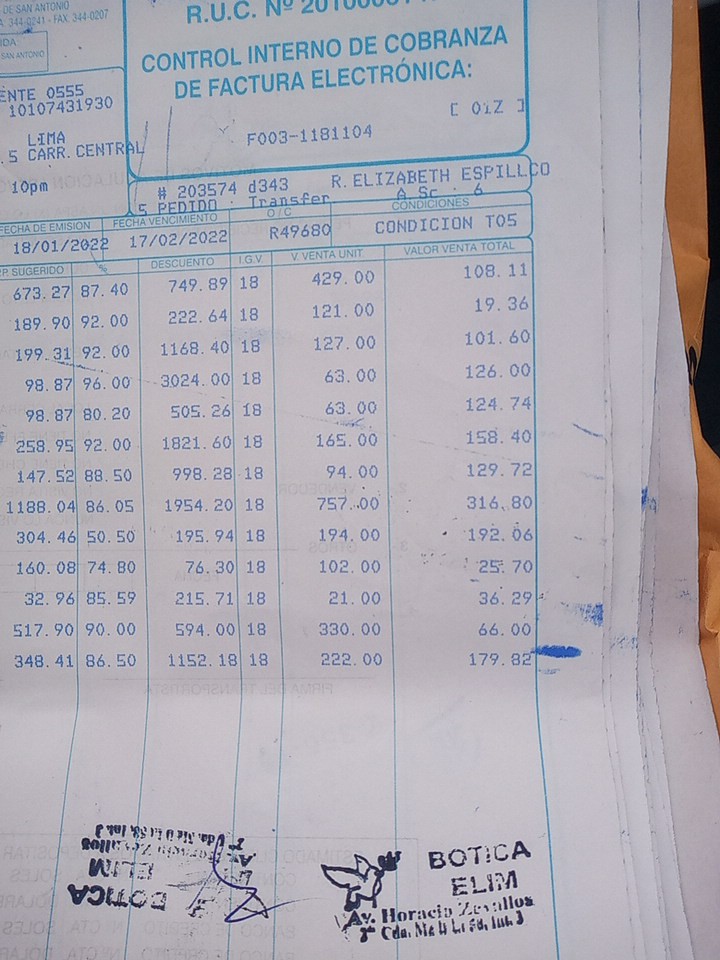 DE SAN ANTONIO
344-0241 - FAX: 344-0207
SAN ANTONIO
R.U.C. Nº
CONTROL INTERNO DE COBRANZA
DE FACTURA ELECTRÓNICA:
[ 01Z ]
F003-1181104
ENTE 0555
10107431930
LIMA
.5 CARR.CENTRAL
10pm
# 203574 d343 R.ELIZABETH ESPILLCO
5 PEDIDO · Transfer A Sc · 6
FECHA DE EMISION FECHA VENCIMIENTO O / C CONDICIONES
18/01/2022 17/02/2022 R49680 CONDICION T05
P. SUGERIDO % DESCUENTO I.G.V. V. VENTA UNIT VALOR VENTA TOTAL
673.27 87.40 749.89 18 429.00 108.11
189.90 92.00 222.64 18 121.00 19.36
199.31 92.00 1168.40 18 127.00 101.60
98.87 96.00 3024.00 18 63.00 126.00
98.87 80.20 505.26 18 63.00 124.74
258.95 92.00 1821.60 18 165.00 158.40
147.52 88.50 998.28 18 94.00 129.72
1188.04 86.05 1954.20 18 757.00 316.80
304.46 50.50 195.94 18 194.00 192.06
160.08 74.80 76.30 18 102.00 25.70
32.96 85.59 215.71 18 21.00 36.29
517.90 90.00 594.00 18 330.00 66.00
348.41 86.50 1152.18 18 222.00 179.82
BOTICA
ELIM
Av. Horacio Zevallos
BOTICA
ELIM
Av. Horacio Zevallos